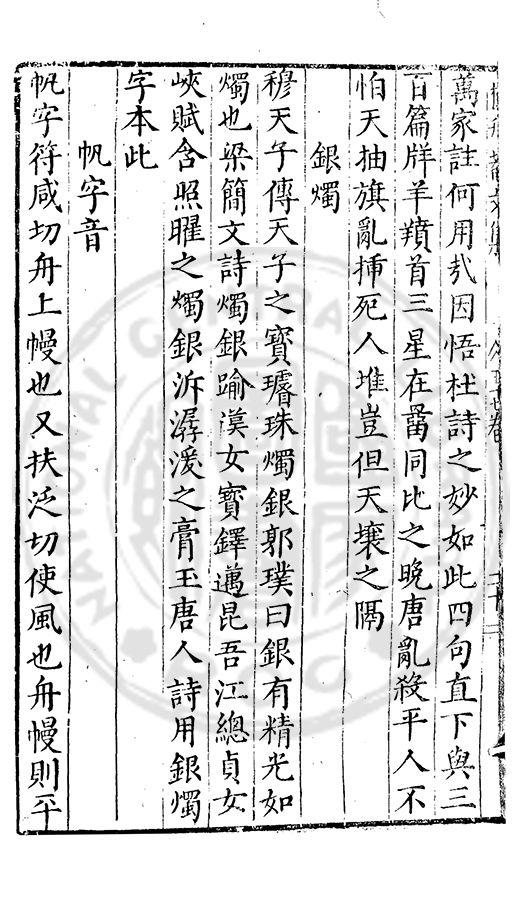 萬家註何用㢤因悟杜詩之妙如此四句直下與三
百篇牂羊羵首三星在罶同比之晚唐亂殺平人不
怕天抽旗亂揷死人堆豈但天壤之隔
銀燭
穆天子傳天子之寶璿珠燭銀郭璞曰銀有精光如
燭也梁簡文詩燭銀踰漢女寶鐸邁昆吾江總貞女
峽賦含照曜之燭銀泝潺湲之膏玉唐人詩用銀燭
字本此
帆字音
帆字符咸切舟上幔也又扶泛切使風也舟幔則平